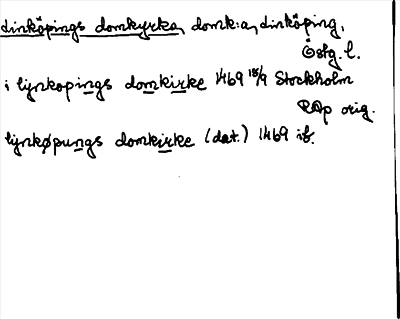 Linköpings domkyrka, domk:a, Linköping,
Östg. l.
i lijnkopings domkirke 1469 18/9 Stockholm
RAp orig.
lijnkøpungs domkirke (dat.) 1469 ib.